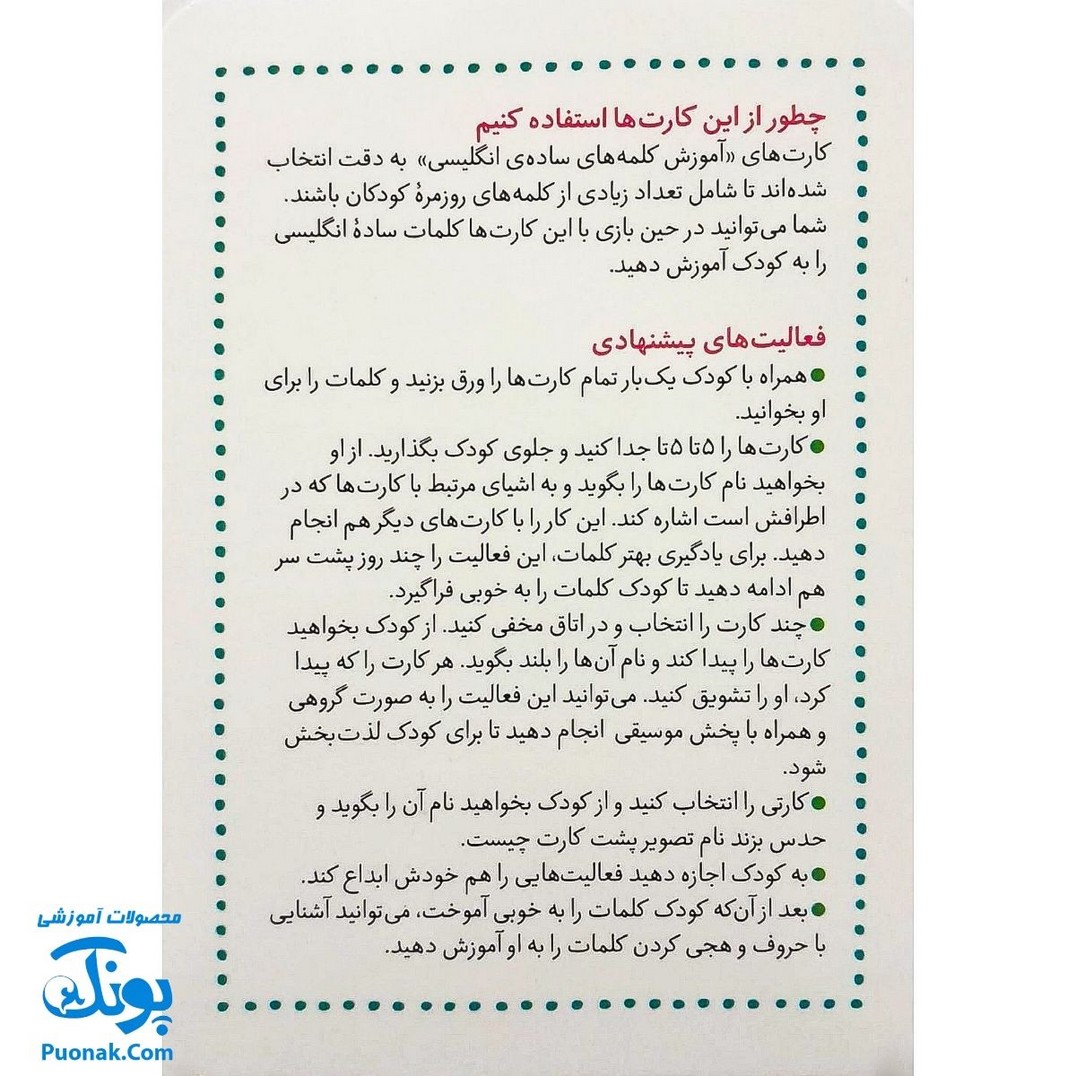 چطور از این کارت‌ها استفاده کنیم
کارت‌های «آموزش کلمه‌های ساده‌ی انگلیسی» به دقت انتخاب
شده‌اند تا شامل تعداد زیادی از کلمه‌های روزمرهٔ کودکان باشند.
شما می‌توانید در حین بازی با این کارت‌ها کلمات سادهٔ انگلیسی
را به کودک آموزش دهید.
فعالیت‌های پیشنهادی
● همراه با کودک یک‌بار تمام کارت‌ها را ورق بزنید و کلمات را برای
او بخوانید.
● کارت‌ها را ۵تا ۵تا جدا کنید و جلوی کودک بگذارید. از او
بخواهید نام کارت‌ها را بگوید و به اشیای مرتبط با کارت‌ها که در
اطرافش است اشاره کند. این کار را با کارت‌های دیگر هم انجام
دهید. برای یادگیری بهتر کلمات، این فعالیت را چند روز پشت سر
هم ادامه دهید تا کودک کلمات را به خوبی فراگیرد.
● چند کارت را انتخاب و در اتاق مخفی کنید. از کودک بخواهید
کارت‌ها را پیدا کند و نام آن‌ها را بلند بگوید. هر کارت را که پیدا
کرد، او را تشویق کنید. می‌توانید این فعالیت را به صورت گروهی
و همراه با پخش موسیقی انجام دهید تا برای کودک لذت‌بخش
شود.
● کارتی را انتخاب کنید و از کودک بخواهید نام آن را بگوید و
حدس بزند نام تصویر پشت کارت چیست.
● به کودک اجازه دهید فعالیت‌هایی را هم خودش ابداع کند.
● بعد از آن‌که کودک کلمات را به خوبی آموخت، می‌توانید آشنایی
با حروف و هجی کردن کلمات را به او آموزش دهید.
محصولات آموزشی
پونک
Puonak.Com